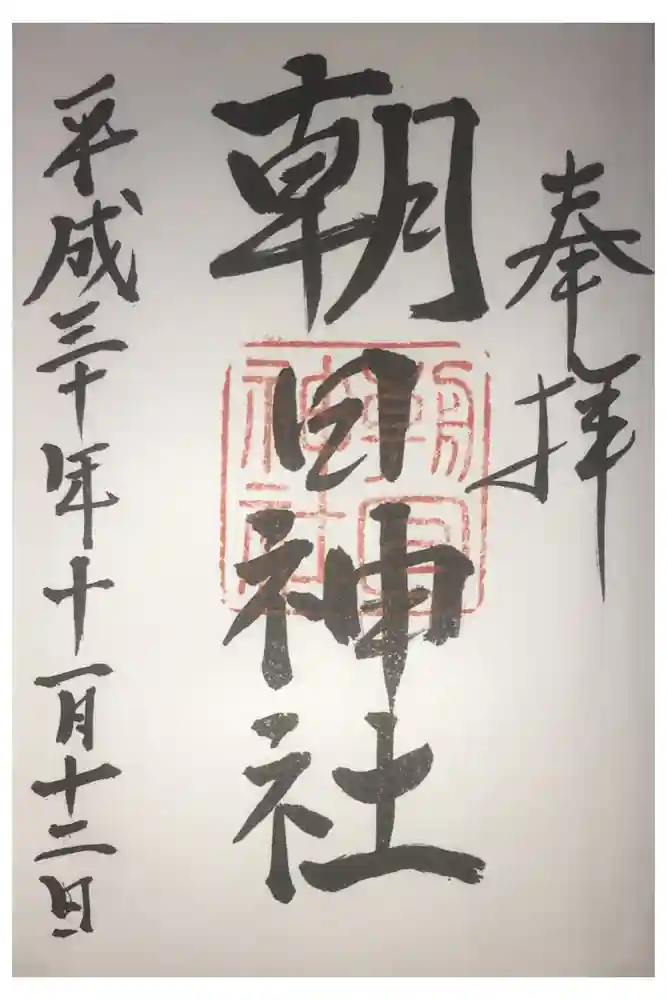 奉拝
朝日神社
朝日
神社
平成三十年十一月十二日